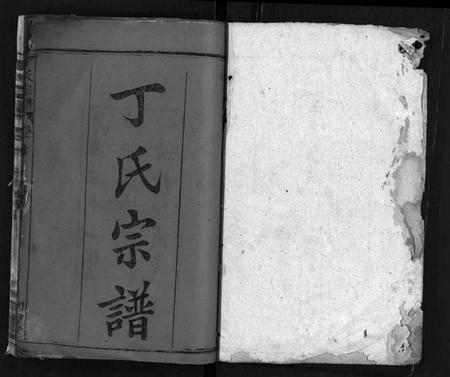 丁氏宗譜